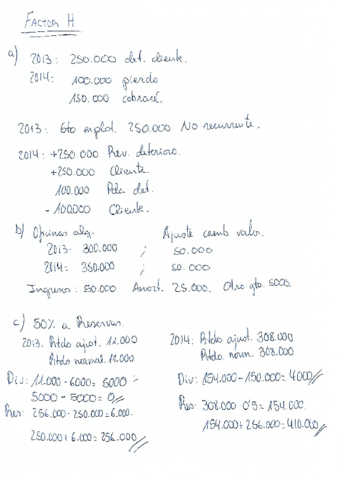 FACTOR H
a) 2013: 250.000 det. cliente.
2014: 100.000 pierdo
150.000 cobraré.
2013: Gto explot. 250.000 No recurrente.
2014: +250.000 Rev. deterioro.
+250.000 Cliente.
100.000 Pdla det.
- 100.000 Cliente.
b) Oficinas alq. Ajuste camb valor.
2013 - 300.000 ; 50.000
2014: 350.000 ; 50.000
Ingresos: 50.000 Amort. 25.000. Otro gto. 5000.
c) 50% a Reservas.
2013. Rtdo ajust. 11.000
Rtdo normal. 11.000
Div: 11.000 - 6000 = 5000
5000 - 5000 = 0
Res: 256.000 - 250.000 = 6.000.
250.000 + 6.000 = 256.000
2014: Rtdo ajust. 308.000
Rtdo norm. 308.000
Div: 154.000 - 150.000 = 4000
Res: 308.000 · 0'5 = 154.000.
154.000 + 256.000 = 410.000